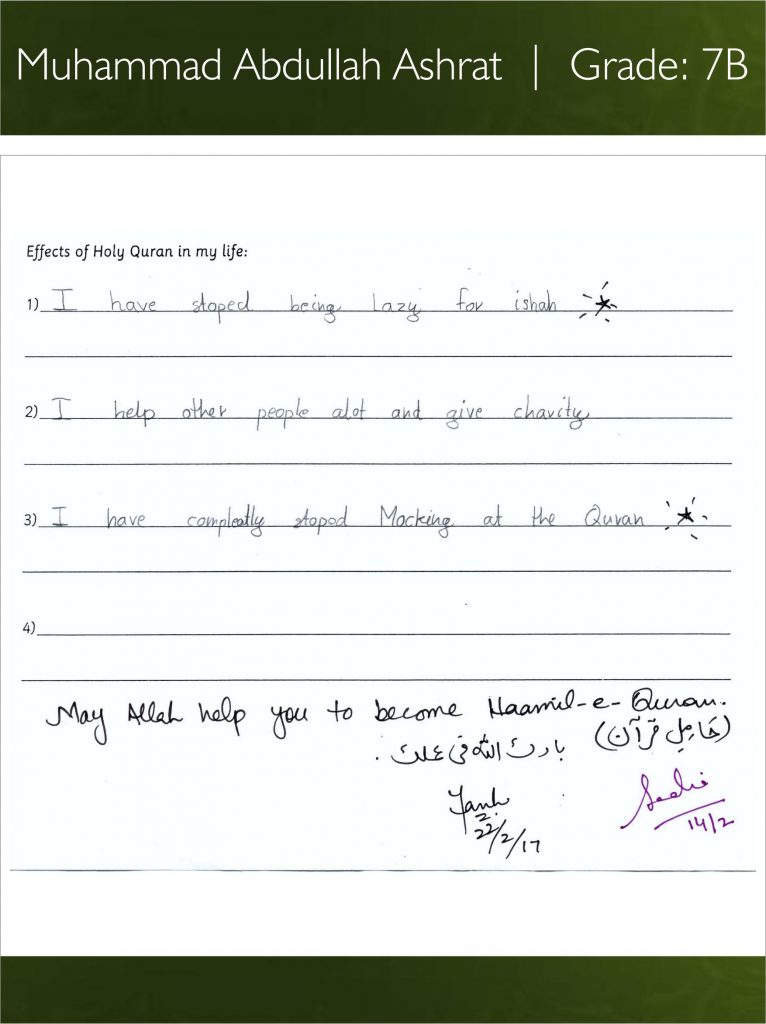 Muhammad Abdullah Ashrat | Grade: 7B
Effects of Holy Quran in my life:
1) I have stoped being lazy for ishah
2) I help other people alot and give charity
3) I have compleatly stoped Mocking at the Quran
4)
May Allah help you to become Haamil-e-Quran.
(حَامِلِ قرآن)
بارك الله في علمك .
22/2/17
14/2